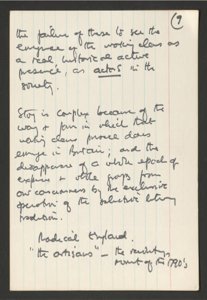 9
the failure of those to see the
emergence of the working class as
a real, historical active
presence, as actors in the
society.
Story is complex because of the
way & form in which that
working class proved does
emerge in Britain; and the
disappearance of a whole epoch of
experience & other groups from
our consciousness by the exclusive
operation of the selective literary
tradition.
Radical England.
"the artisans" – the revolutionary
movt of the 1790's